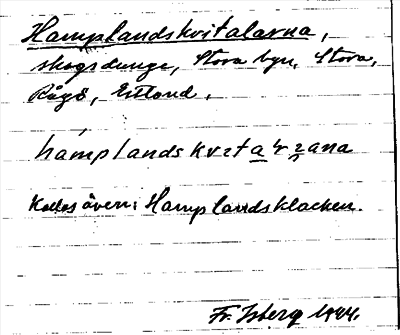 Hamplandskvitalarna,
skogsdunge, Stora byn, Stora,
Rågö, Estland.
hamplandskvita
Kallas även: Hamplandsklacken.
Fr. Isberg 1944.